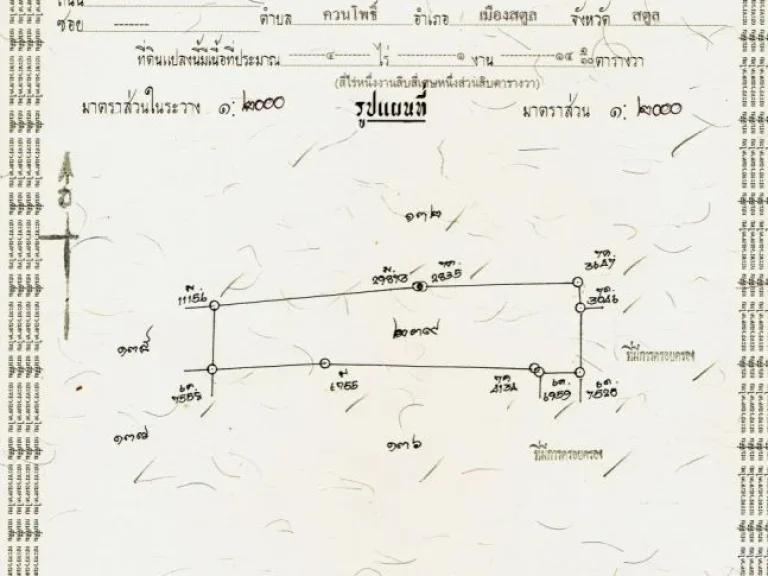 ซอย ------- ตำบล ควนโพธิ์ อำเภอ เมืองสตูล จังหวัด สตูล
ที่ดินแปลงนี้มีเนื้อที่ประมาณ ๔ ไร่ ๑ งาน ๑๔ ๑/๑๐ ตารางวา
(สี่ไร่หนึ่งงานสิบสี่เศษหนึ่งส่วนสิบตารางวา)
มาตราส่วนในระวาง ๑: ๒๐๐๐ รูปแผนที่ มาตราส่วน ๑: ๒๐๐๐
๑๓๒
11156
2835
3647
3046
๒๓๙
๑๓๕
ที่มีการครอบครอง
7552
6755
4134
6959
7520
๑๓๗
๑๓๖
ที่มีการครอบครอง